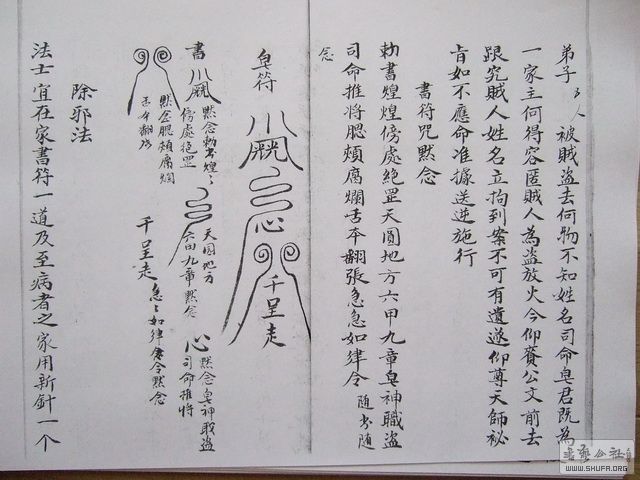 弟子ㄋ人被賊盗去何物不知姓名司命皂君既為
一家主何得容匿賊人為盗放火今仰賫公文前去
跟究賊人姓名立拘到案不可有遺遂仰尊天師祕
肯如不應命准據送逆施行
書符咒默念
勅書煌煌傍處絶罡天圓地方六甲九章皂神職盗
司命推将腮頰腐爛舌本翻張急急如律令 随书随
念
皂符
心
千呈走
書
默念勅书煌〻
傍處絶罡
天圓地方
六甲九章默念
心
默念皂神职盗
司命推将
默念腮頰腐爛
舌本翻張
千呈走
急〻如律令默念
除邪法
法士宜在家書符一道及至病者之家用新針一个
WWW.SHUFA.ORG